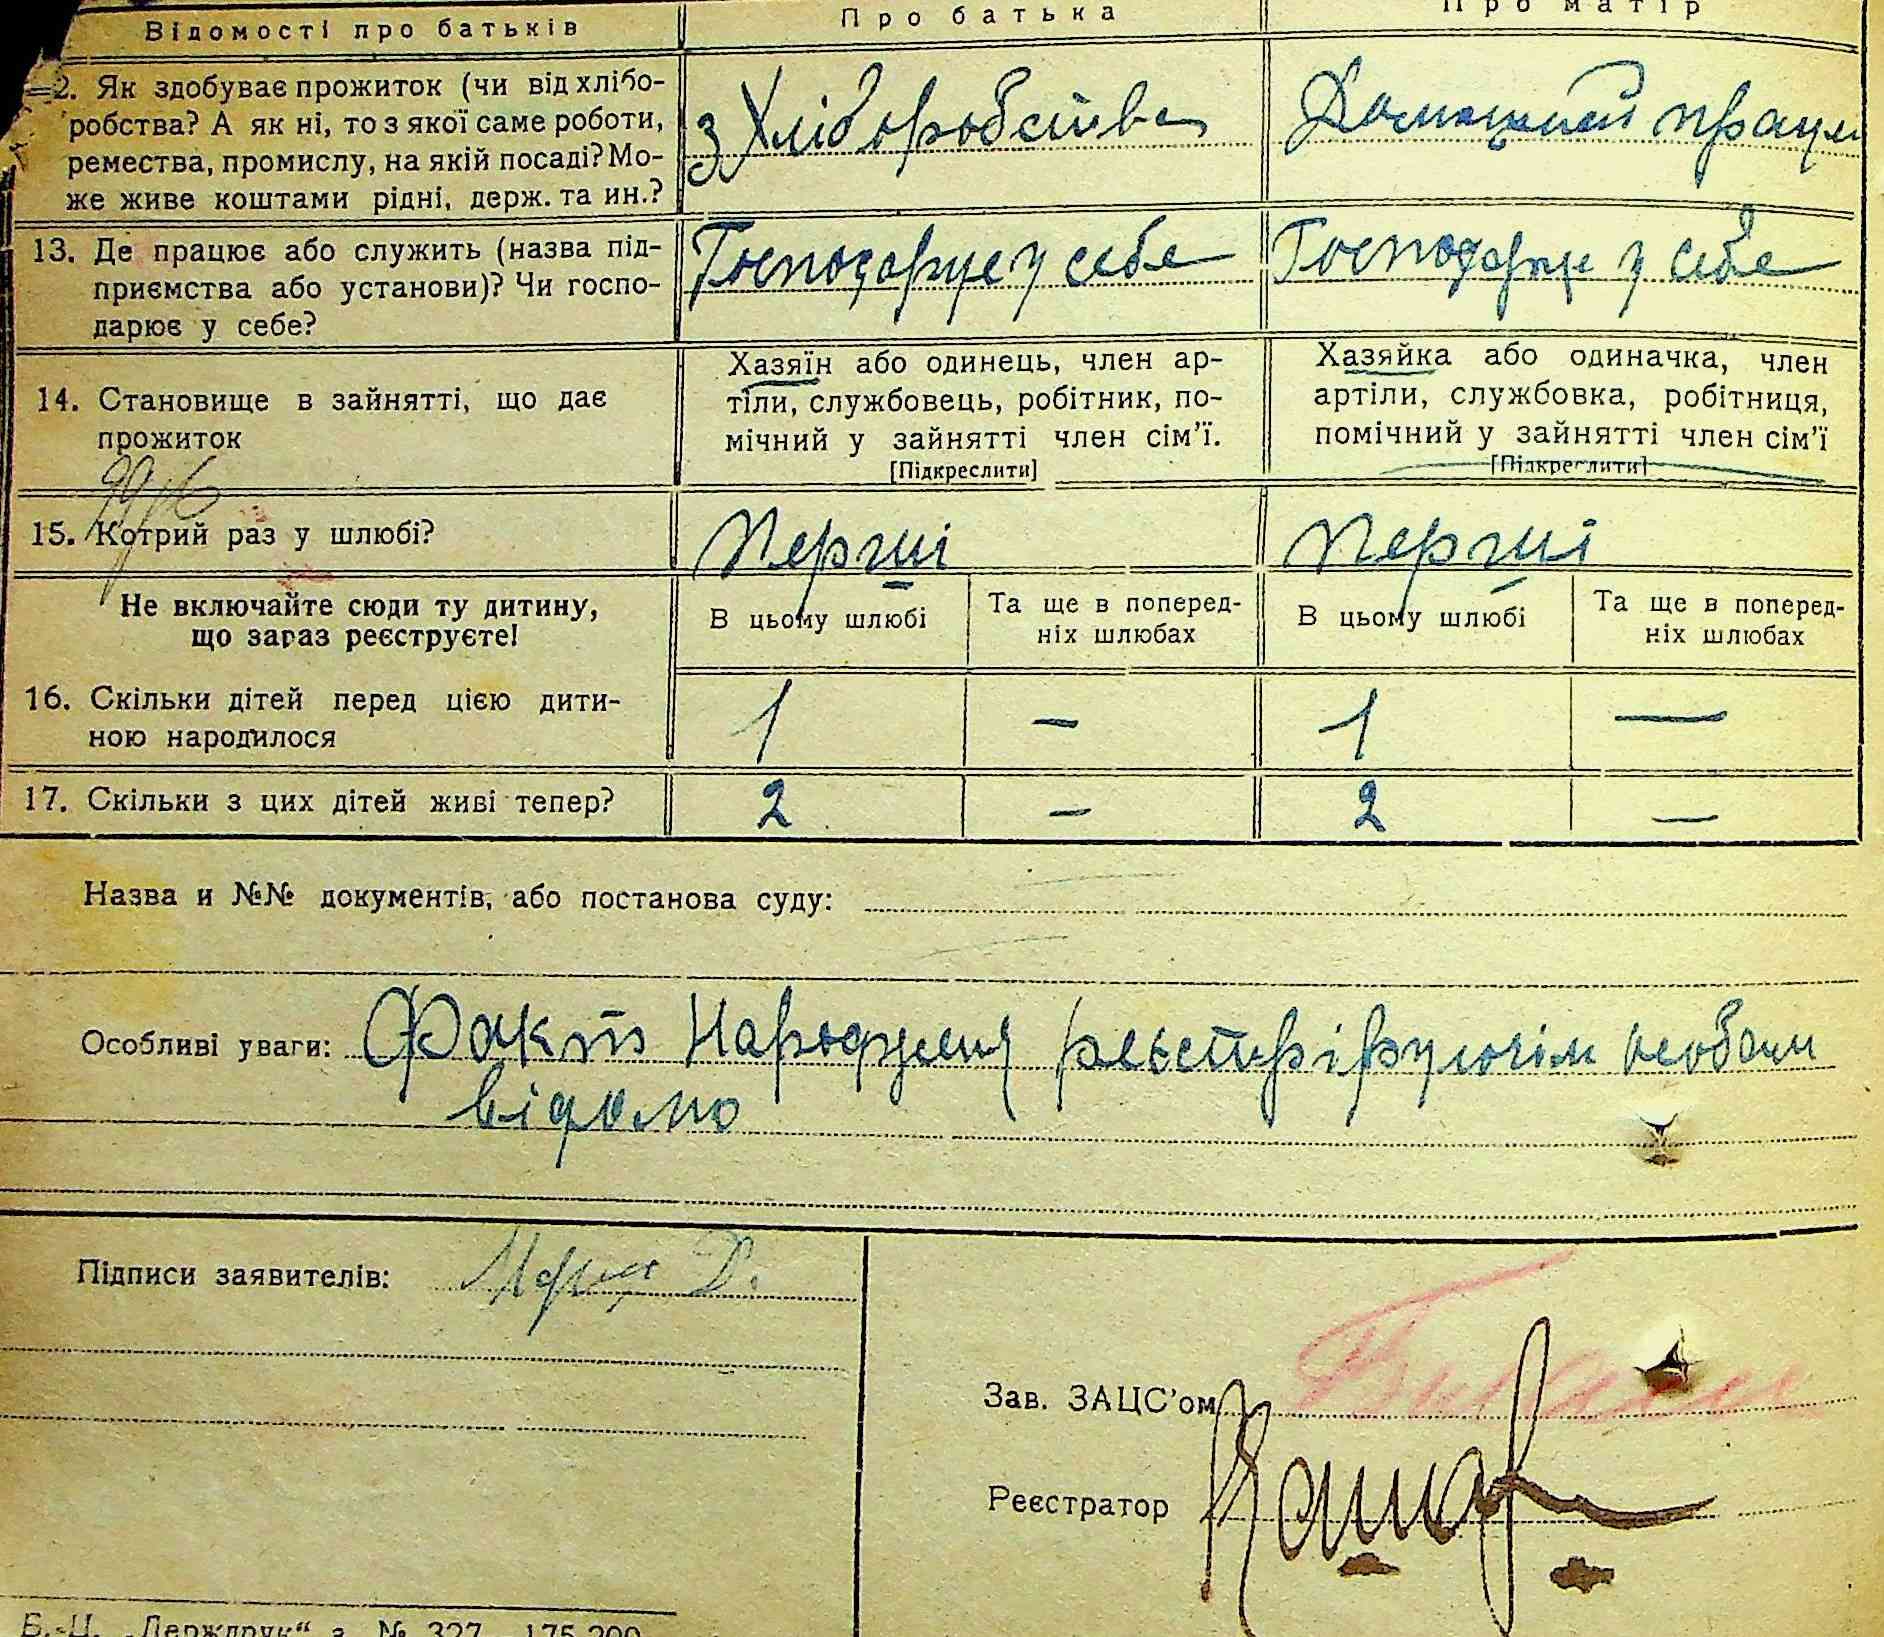 Відомості про батьків
Про батька
Про матір
2. Як здобуває прожиток (чи від хлібо-
робства? А як ні, то з якої саме роботи,
ремества, промислу, на якій посаді? Мо-
же живе коштами рідні, держ. та ин.?
з Хліборобства
Домашній
13. Де працює або служить (назва під-
приємства або установи)? Чи госпо-
дарює у себе?
Господарює у себе
Господарює у себе
14. Становище в зайнятті, що дає
прожиток
Хазяїн або одинець, член ар-
тіли, службовець, робітник, по-
мічний у зайнятті член сім'ї.
[Підкреслити]
Хазяйка або одиначка, член
артіли, службовка, робітниця,
помічний у зайнятті член сім'ї
[Підкреслити]
15. Котрий раз у шлюбі?
Перші
Перші
Не включайте сюди ту дитину,
що зараз реєструєте!
В цьому шлюбі
Та ще в поперед-
ніх шлюбах
В цьому шлюбі
Та ще в поперед-
ніх шлюбах
16. Скільки дітей перед цією дити-
ною народилося
1 – 1 –
17. Скільки з цих дітей живі тепер?
2 – 2 –
Назва и №№ документів, або постанова суду:
Особливі уваги: Факт Народження особам
відомо
Підписи заявителів:
Зав. ЗАЦС'ом
Реєстратор
Б.-Ц. „Держдрук“ з. № 327 175.200